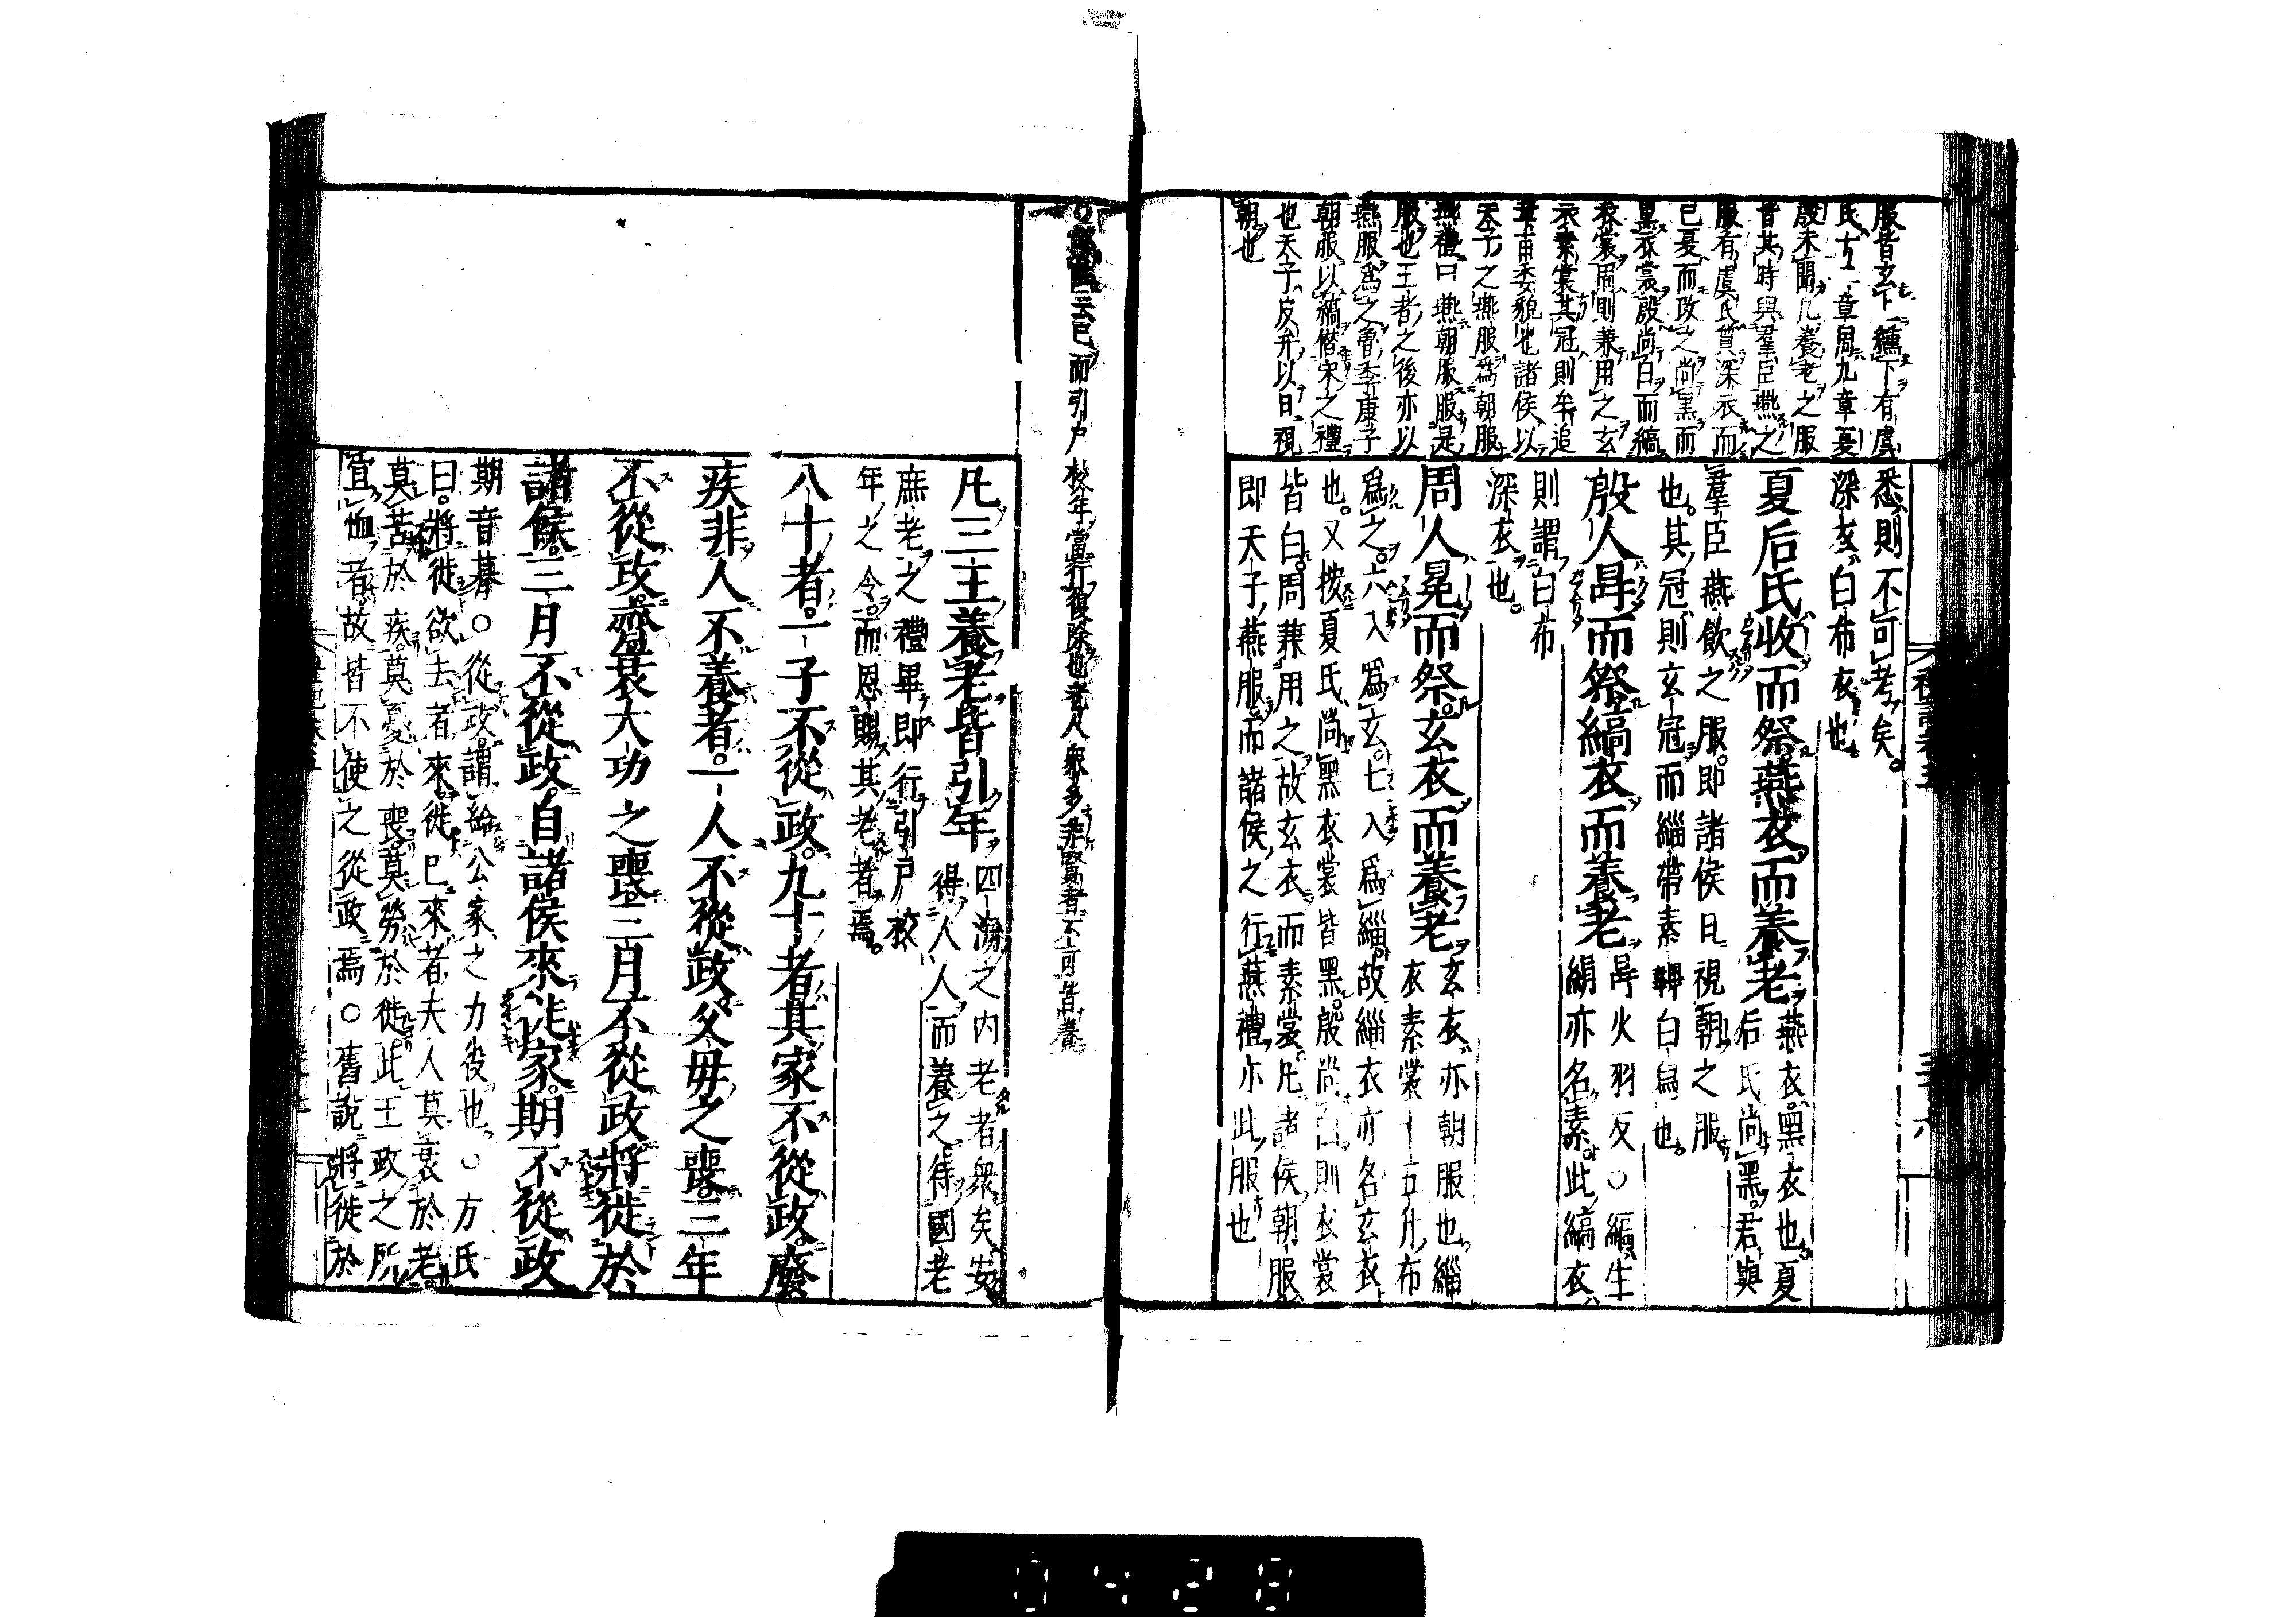 服皆玄上纁下有虞
氏十二章周九章夏
殷未聞凡養老之服
皆其時與羣臣燕之
服有虞氏質深衣而
已夏而改之尚黑而
黑衣裳殷尚白而縞
衣裳周則兼用之玄
衣素裳其冠則牟追
章甫委貌也諸侯以
天子之燕服爲朝服
燕禮曰燕朝服服是
服也王者之後亦以
燕服爲之魯季康子
朝服以縞僭宋之禮
也天子皮弁以日視
朝也
悉則不可考矣
深衣白布衣也
夏后氏收而祭燕衣而養老燕衣黑衣也夏
后氏尚黑君與
羣臣燕飲之服即諸侯日視朝之服
也其冠則玄冠而緇帶素韠白舄也
殷人冔而祭縞衣而養老冔火羽反○縞生
絹亦名素此縞衣
則謂白布
深衣也
周人冕而祭玄衣而養老玄衣亦朝服也緇
衣素裳十五升布
爲之六入爲玄七入爲緇故緇衣亦名玄衣
也又按夏氏尚黑衣裳皆黑殷尚白則衣裳
皆白周兼用之故玄衣而素裳凡諸侯朝服
即天子燕服而諸侯之行燕禮亦此服也
云已而引戶校年當行復除也老人衆多非賢者不可皆養
凡三王養老皆引年四海之内老者衆矣安
得人人而養之待國老
庶老之禮畢即行引戶校
年之令而恩賜其老者焉
八十者一子不從政九十者其家不從政廢
疾非人不養者一人不從政父母之喪三年
不從政齊衰大功之喪三月不從政將徙於
諸侯三月不從政自諸侯來徙家期不從政
期音朞○從政謂給公家之力役也○方氏
曰將徙欲去者來徙已來者夫人莫衰於老
莫苦於疾莫憂於喪莫勞於徙此王政之所
宜恤者故皆不使之從政焉○舊說將徙於